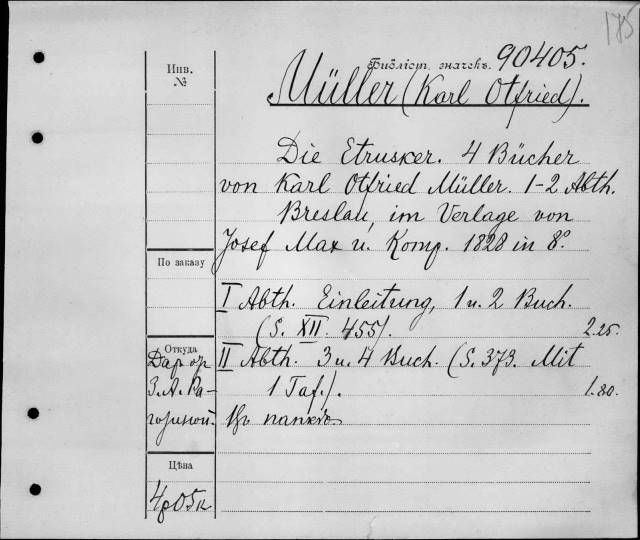 175
Библіот. значекъ. 90405.
Müller (Karl Otfried).
Die Etrusker. 4 Bücher
von Karl Otfried Müller. 1-2 Abth.
Breslau, im Verlage von
Josef Max u. Komp. 1828 in 8°.
I Abth. Einleitung, 1 u. 2 Buch.
(S. XII. 455). 2.25.
II Abth. 3 u. 4 Buch. (S. 373. Mit
1 Taf.). 1.80.
Въ папкѣ.
Инв.
№
По заказу
Откуда
Даръ отъ
З. А. Ра-
гозиной.
Цѣна
4р05к